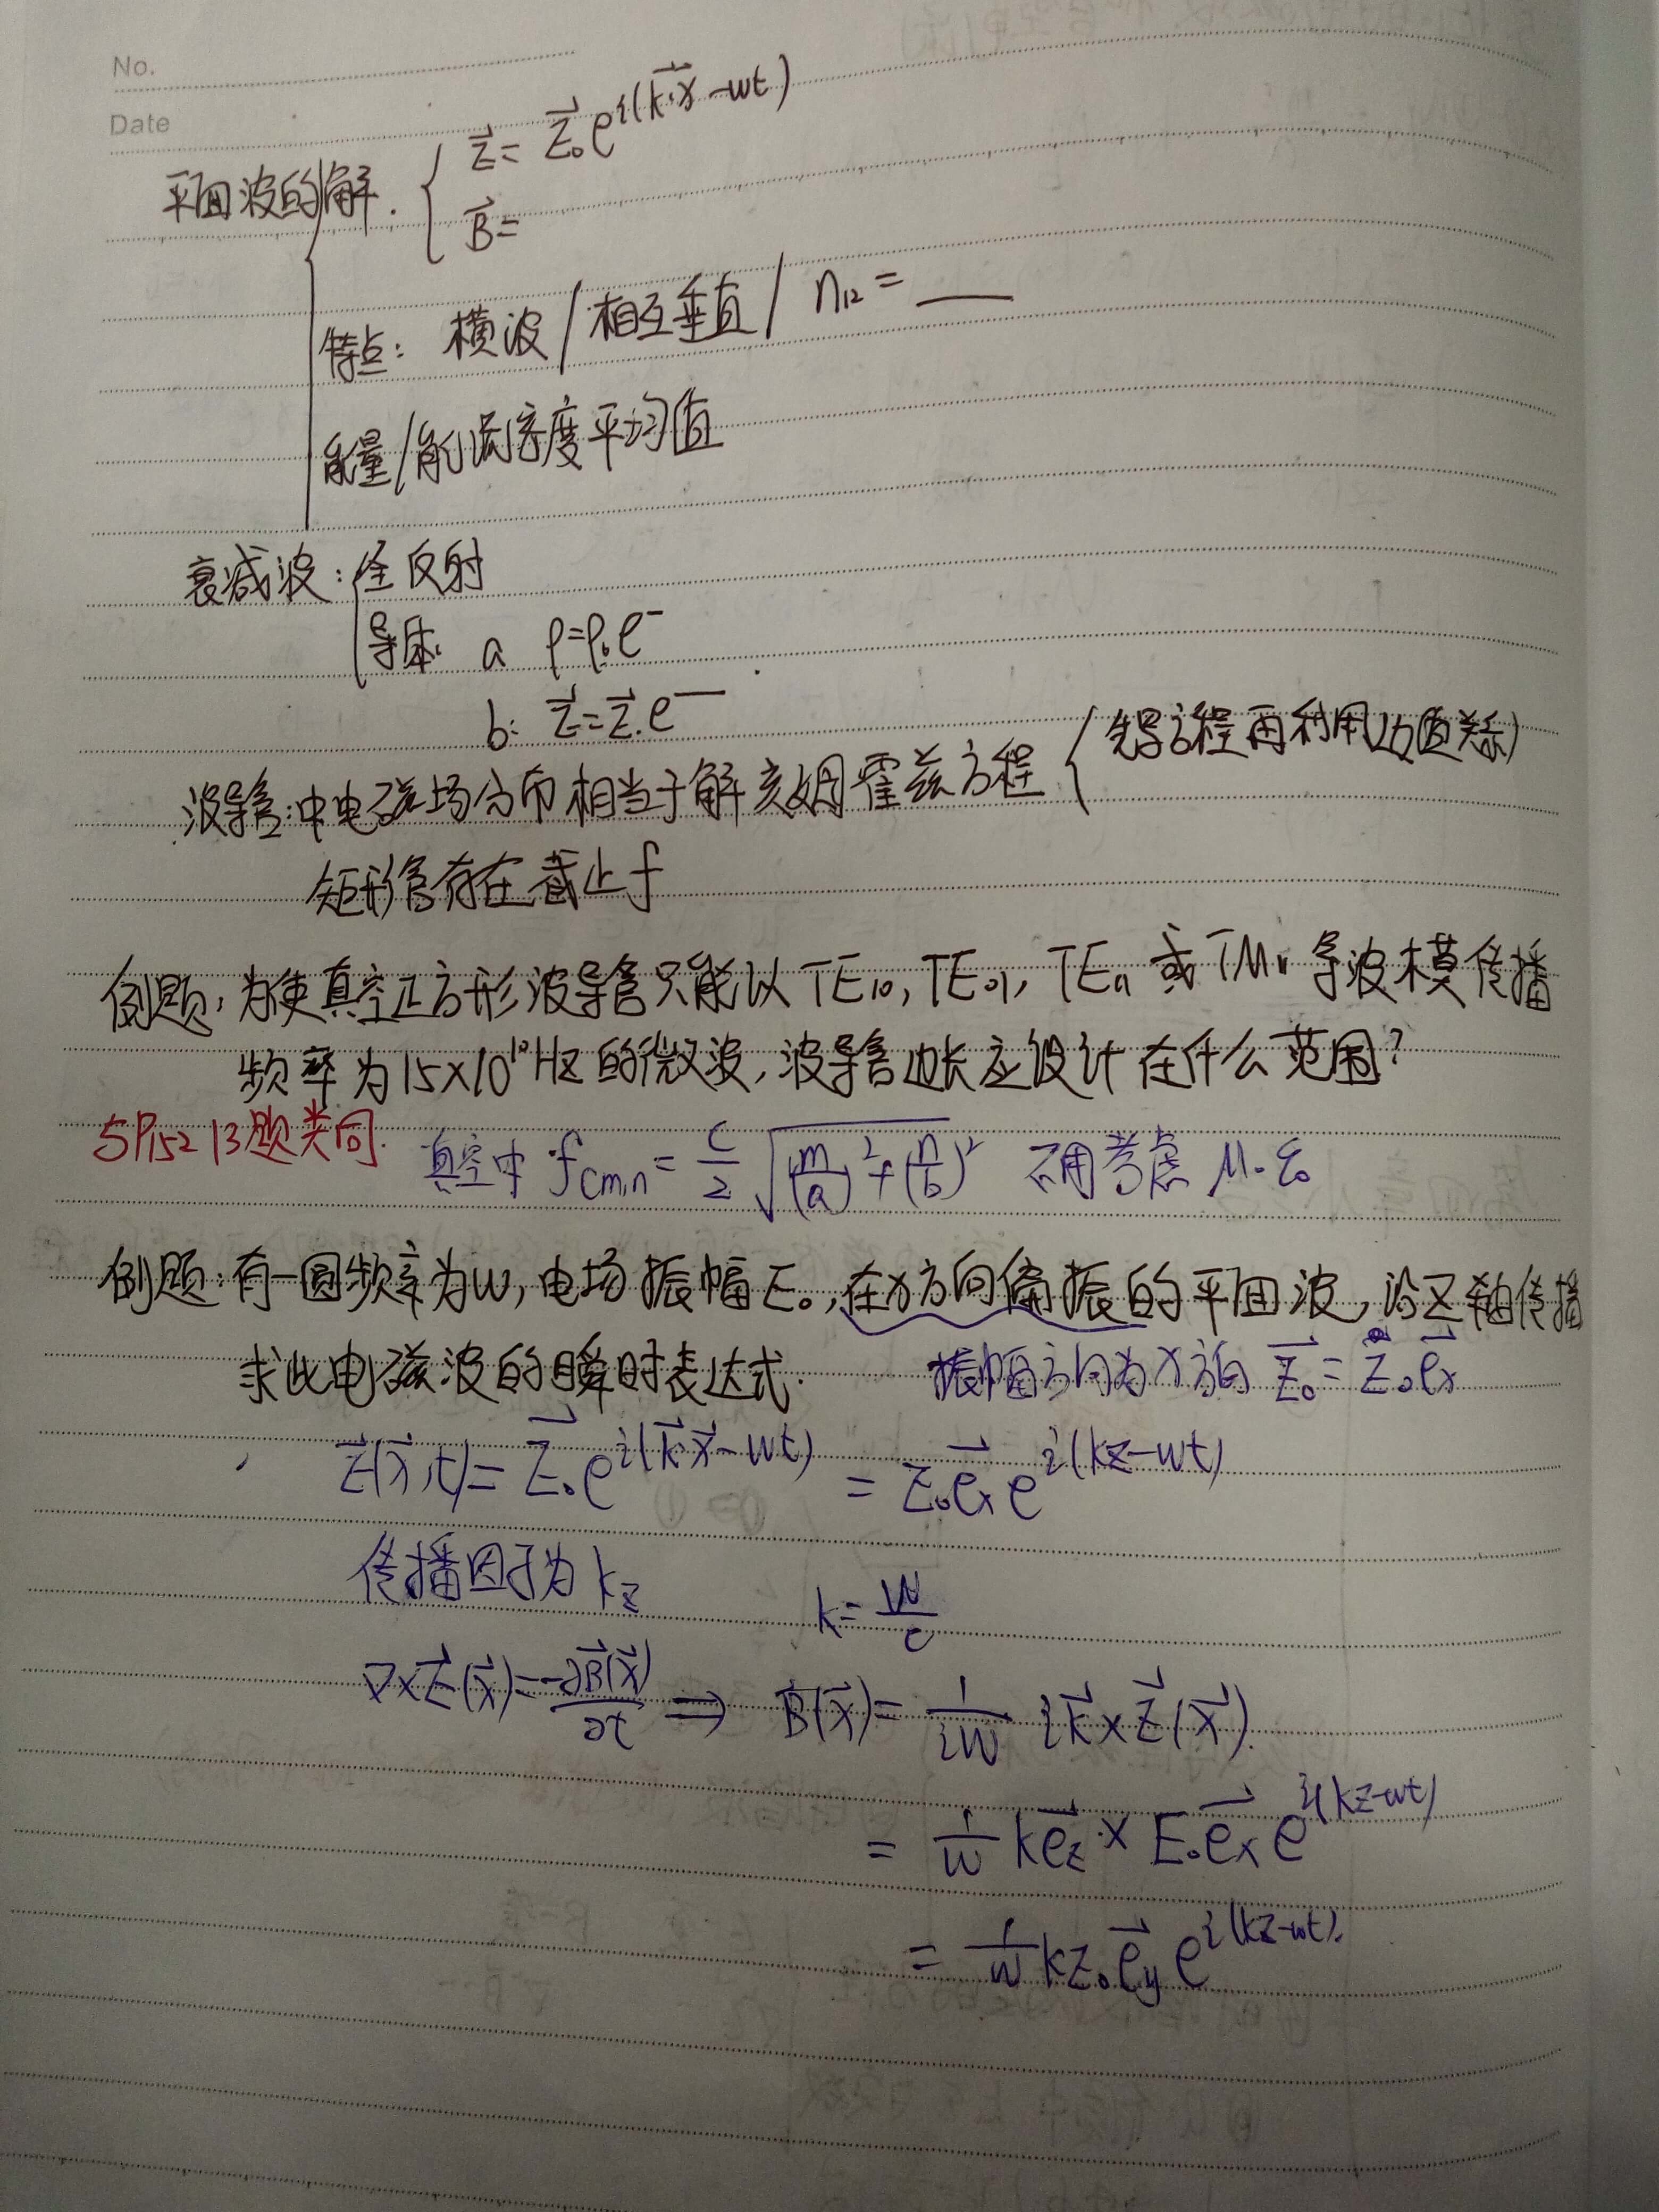 No.
Date
平面波的解. { E⃗ = E⃗₀e^{i(k⃗·x⃗-wt)}
B⃗=
特点: 横波/相互垂直/ n₁₂ = ___
能量/能流密度平均值
衰减波: 全反射
导体: a ρ=ρ₀e^-
b: E⃗=E⃗₀e^—
波导管:中电磁场分布相当于解亥姆霍兹方程 { 先写方程再利用边值关系)
矩形管存在截止f
例题:为使真空正方形波导管只能以TE₁₀, TE₀₁, TE₁₁或TM₁₁导波模传播
频率为15×10¹⁰Hz的微波,波导管边长应设计在什么范围?
5P152 13题类同. 真空中 f_{cm,n} = C/2 √((m/a)²+(n/b)²) 不用考虑 μ₀ ε₀
例题:有一圆频率为w,电场振幅E₀,在x方向偏振的平面波,沿Z轴传播
求此电磁波的瞬时表达式. 振幅方向为x方向 E⃗₀ = E₀e⃗ₓ
E⃗(x⃗,t) = E⃗₀e^{i(k⃗·x⃗-wt)} = E₀e⃗ₓe^{i(kz-wt)}
传播因子为kz k= w/c
∇×E⃗(x⃗)=-∂B⃗(x⃗)/∂t ⇒ B⃗(x⃗)= 1/iw ik⃗×E⃗(x⃗).
= 1/w ke⃗z × E₀e⃗ₓe^{i(kz-wt)}
= 1/w kE₀e⃗y e^{i(kz-wt)}.